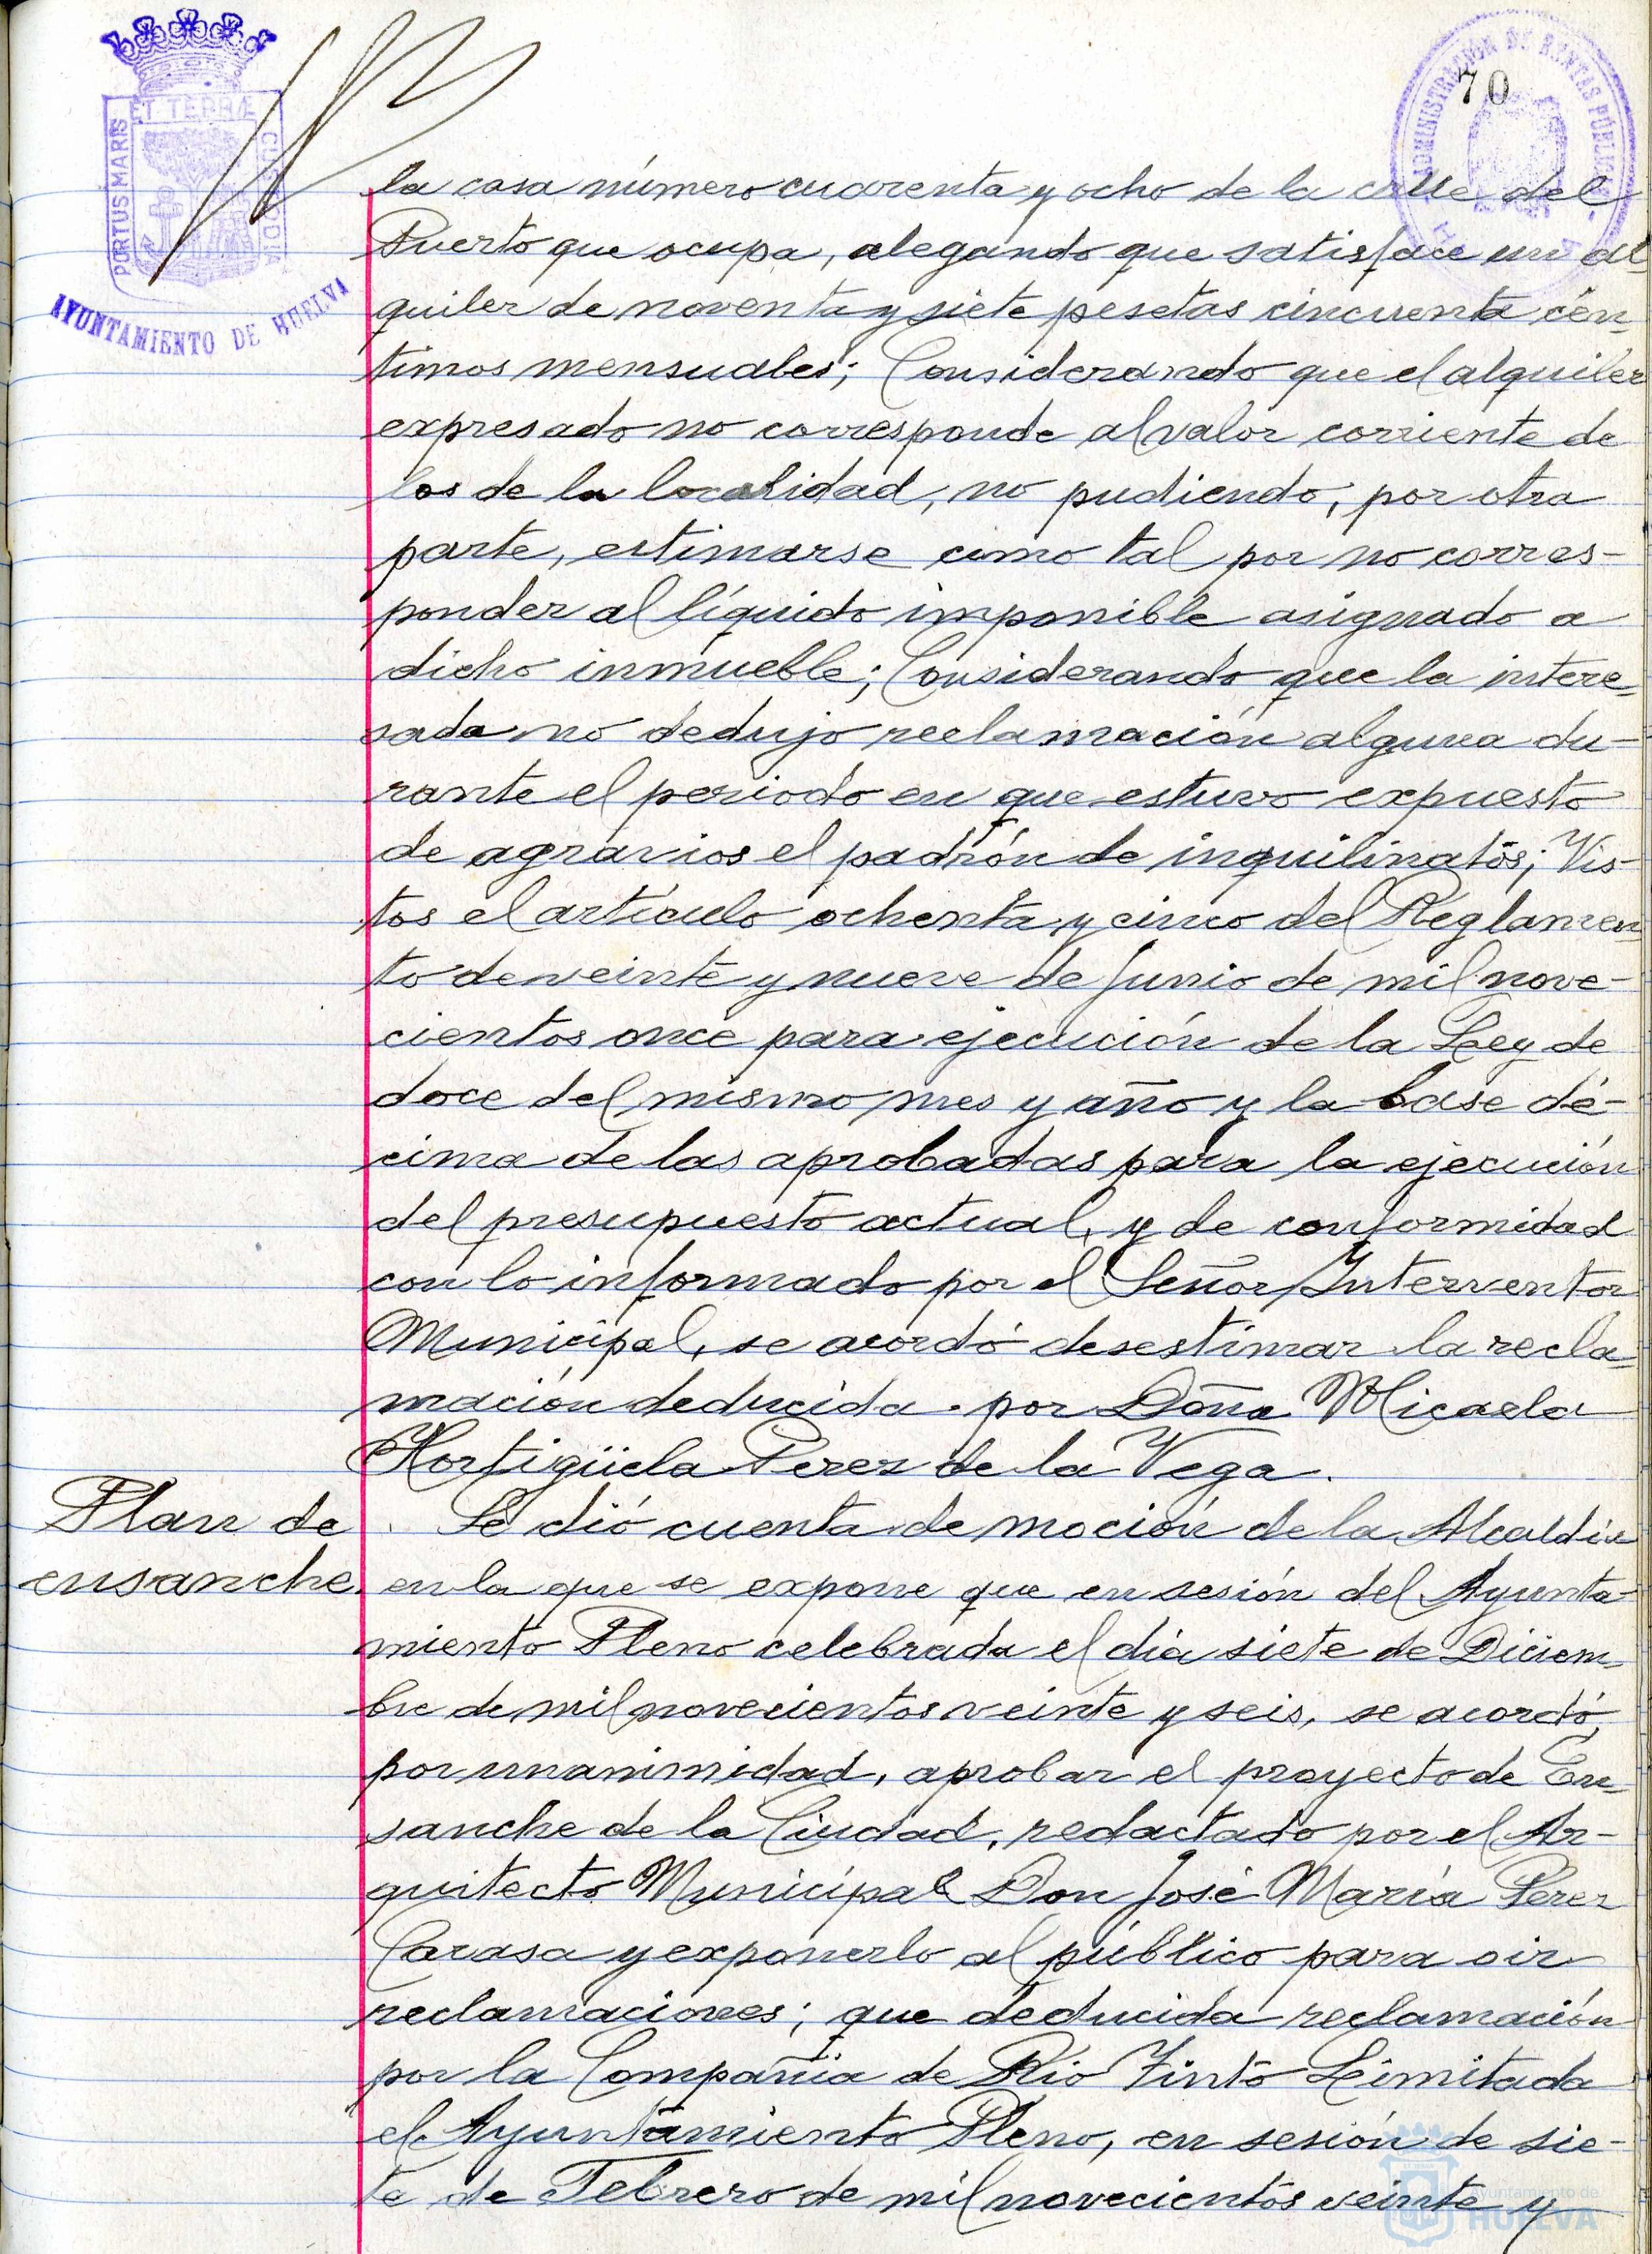 70
ADMINISTRACIÓN DE RENTAS PÚBLICAS
ET TERRÆ
PORTUS MARIS
CUSTODIA
AYUNTAMIENTO DE HUELVA
la casa número cuarenta y ocho de la calle del
Puerto que ocupa, alegando que satisface un al-
quiler de noventa y siete pesetas cincuenta cén-
timos mensuales; Considerando que el alquiler
expresado no corresponde al valor corriente de
los de la localidad, no pudiendo, por otra
parte, estimarse como tal por no corres-
ponder al líquido imponible asignado a
dicho inmueble; Considerando que la intere-
sada no dedujo reclamación alguna du-
rante el periodo en que estuvo expuesto
de agravios el padrón de inquilinatos; Vis-
tos el artículo ochenta y cinco del Reglamen
to de veinte y nueve de Junio de mil nove-
cientos once para ejecución de la Ley de
doce del mismo mes y año y la base dé-
cima de las aprobadas para la ejecución
del presupuesto actual, y de conformidad
con lo informado por el Señor Interventor
Municipal, se acordó desestimar la recla-
mación deducida por Doña Micaela
Hortigüela Perez de la Vega.
Plan de
ensanche.
Se dió cuenta de moción de la Alcaldía
en la que se expone que en sesión del Ayunta-
miento Pleno celebrada el día siete de Diciem-
bre de mil novecientos veinte y seis, se acordó,
por unanimidad, aprobar el proyecto de En-
sanche de la Ciudad, redactado por el Ar-
quitecto Municipal Don José María Perez
Carasa y exponerlo al público para oir
reclamaciones; que deducida reclamación
por la Compañía de Rio Tinto Limitada
el Ayuntamiento Pleno, en sesión de sie-
te de Febrero de mil novecientos veinte y
Ayuntamiento de
HUELVA